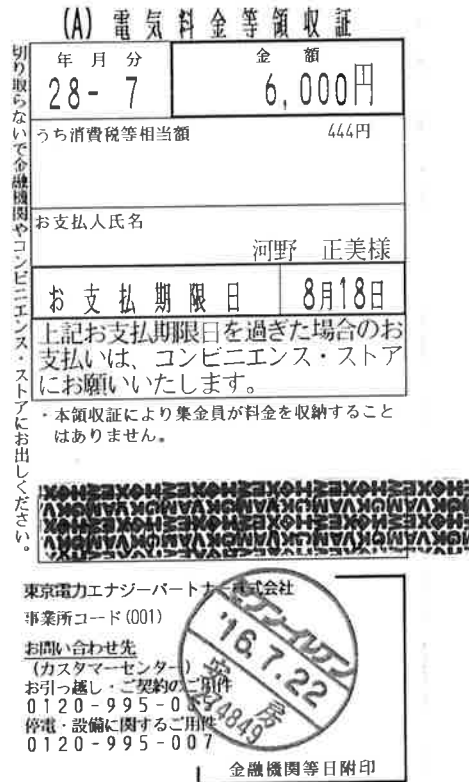 (A) 電気料金等領収証
切り取らないで金融機関やコンビニエンス・ストアにお出しください。
年月分
金額
28- 7
6,000円
うち消費税等相当額
444円
お支払人氏名
河野 正美様
お支払期限日
8月18日
上記お支払期限日を過ぎた場合のお
支払いは、コンビニエンス・ストア
にお願いいたします。
・本領収証により集金員が料金を収納すること
はありません。
東京電力エナジーパートナー株式会社
事業所コード(001)
お問い合わせ先
(カスタマーセンター)
お引っ越し・ご契約のご用件
0120-995-0
停電・設備に関するご用件
0120-995-007
セブン-イレブン
'16.7.22
安房
274849
金融機関等日附印